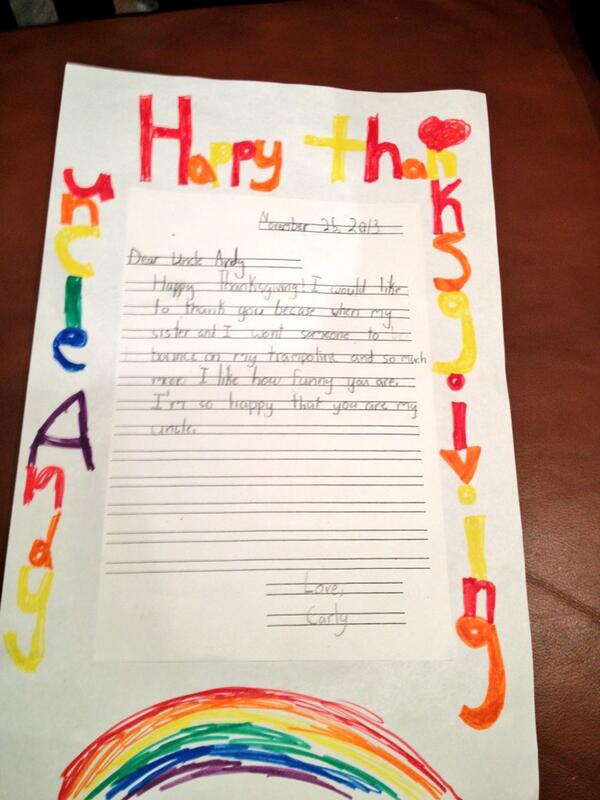 Happy thanksgiving
uncle Andy
November 25, 2013
Dear Uncle Andy
Happy Thanksgiving! I would like
to thank you becase when my
sister and I wont someone to
bounce on my trampoline and so much
more. I like how funny you are.
I'm so happy that you are my
uncle.
Love,
Carly